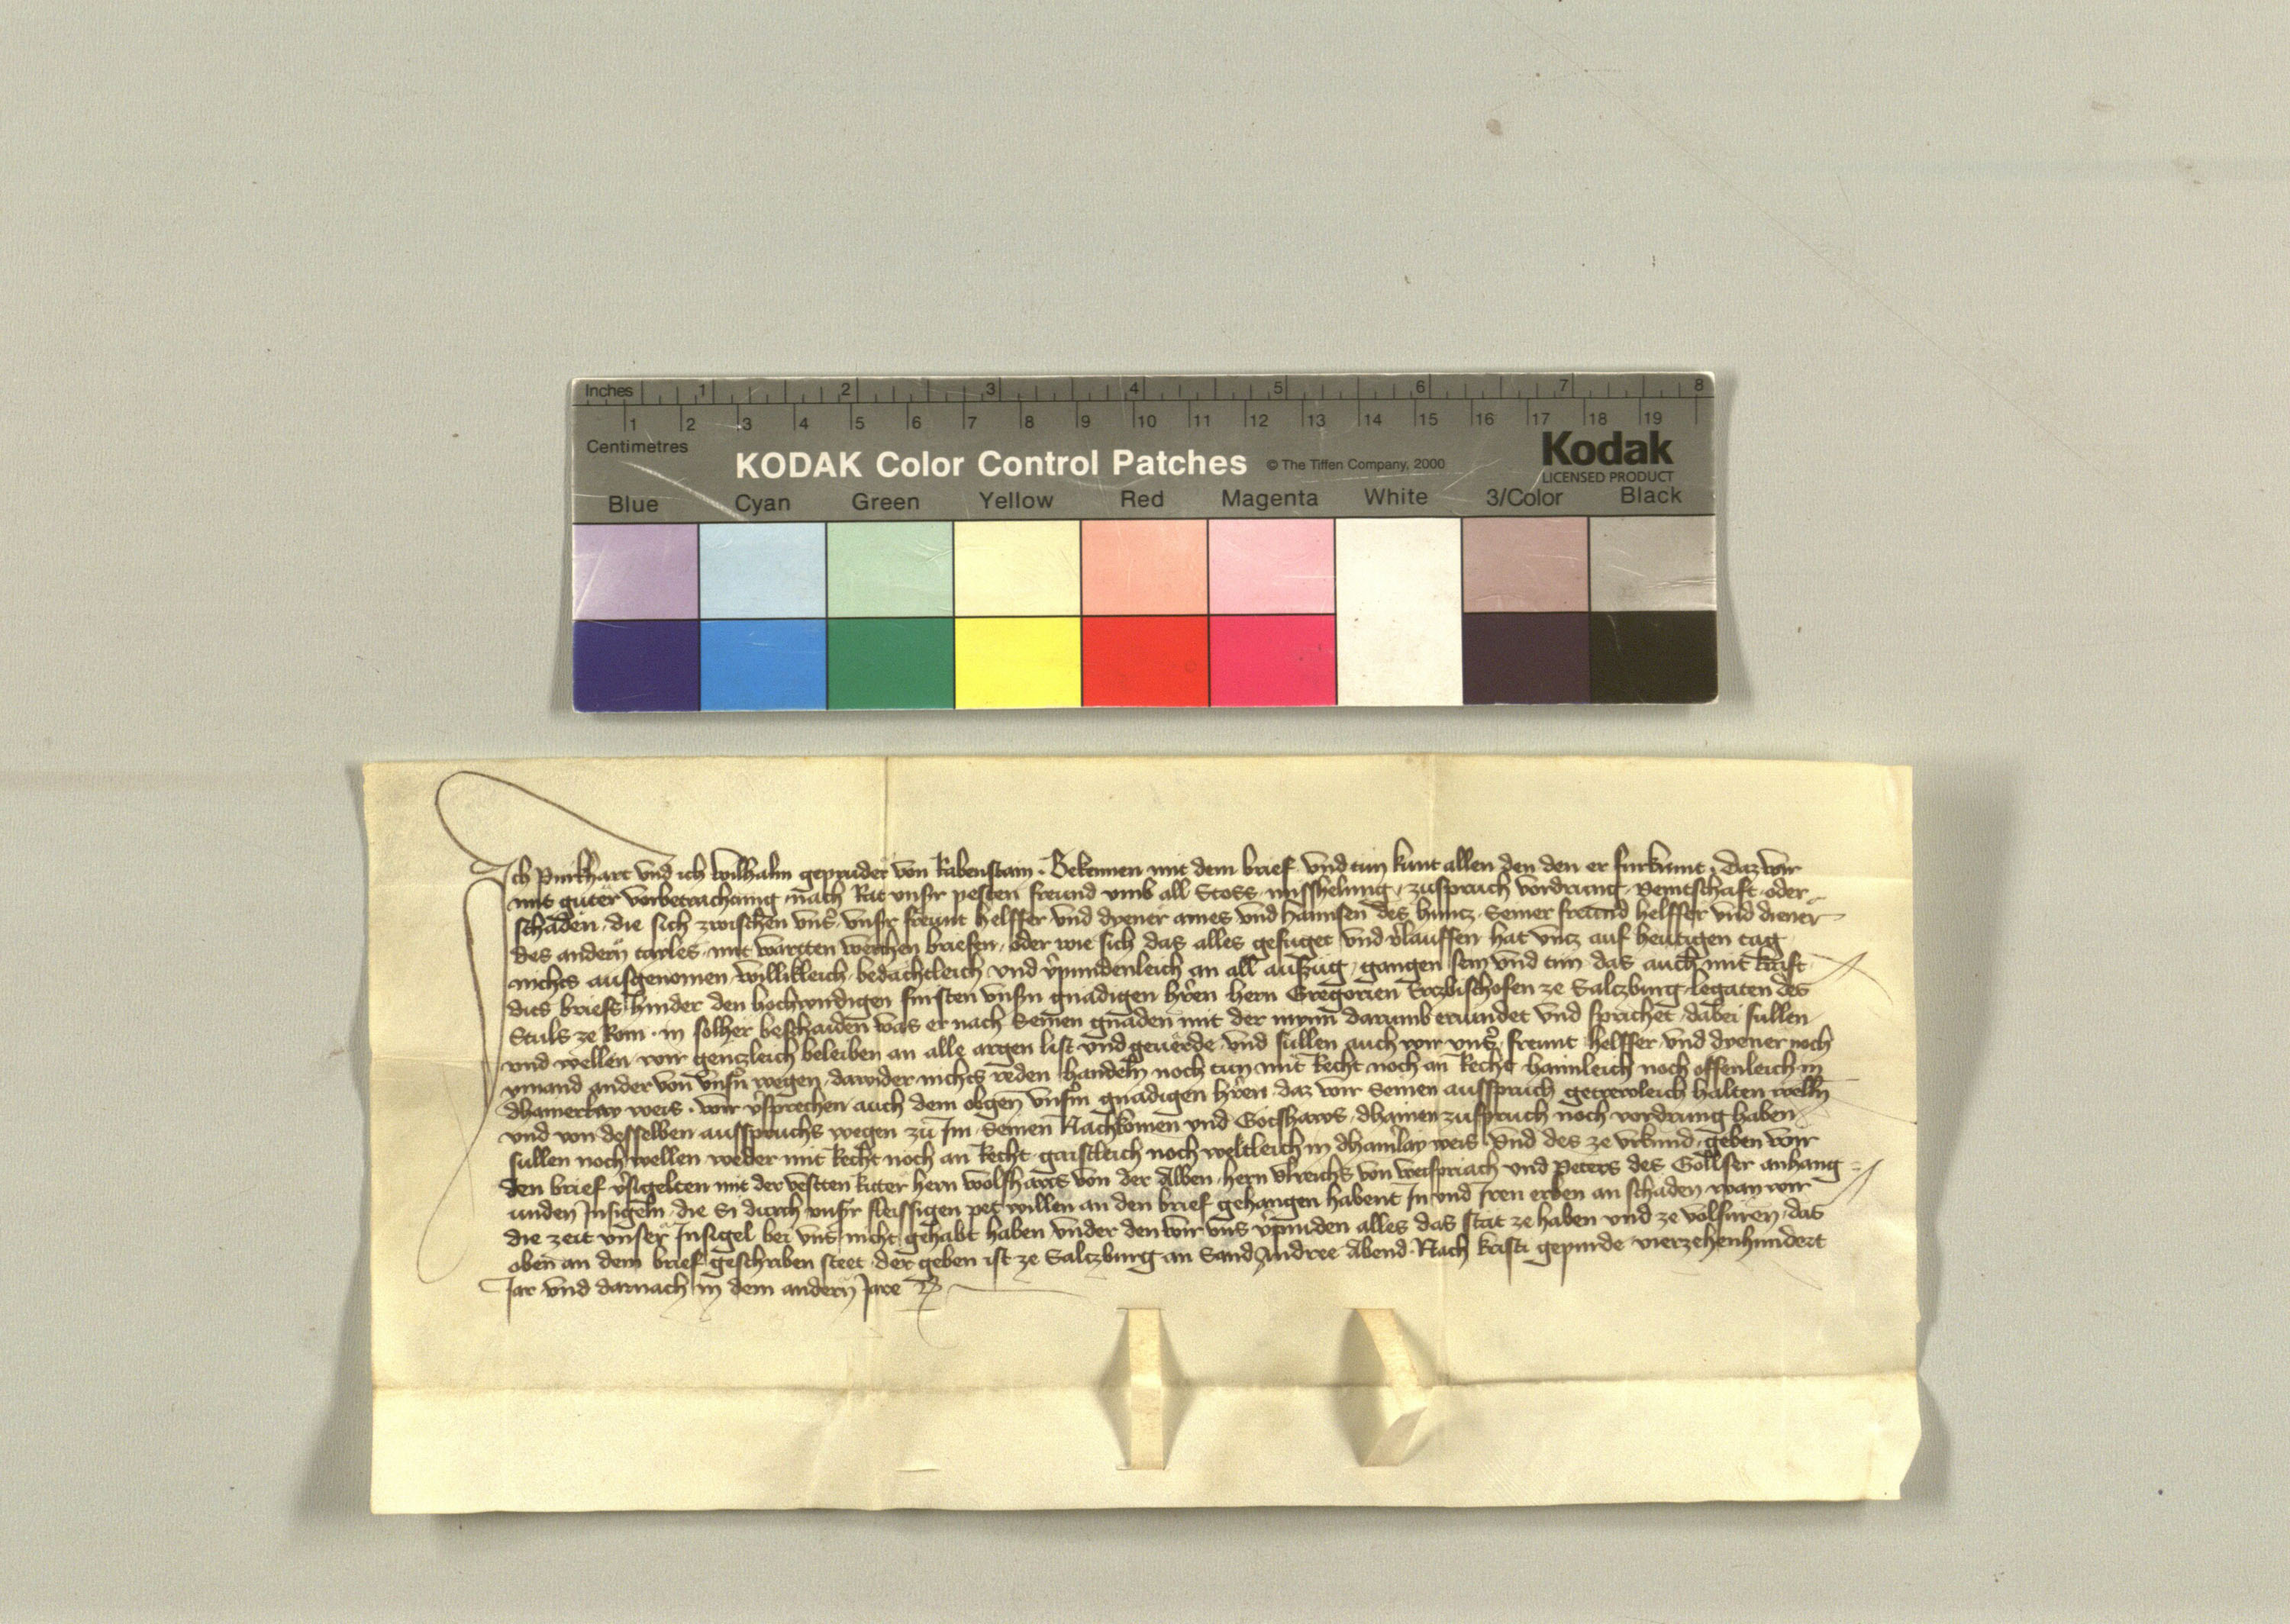 Inches 1 2 3 4 5 6 7 8
1 2 3 4 5 6 7 8 9 10 11 12 13 14 15 16 17 18 19
Centimetres
KODAK Color Control Patches © The Tiffen Company, 2000 Kodak
LICENSED PRODUCT
Blue Cyan Green Yellow Red Magenta White 3/Color Black
Ich Purkhart vnd ich Wilhalm gepruder von Rabenstain. Bekennen mit dem brief vnd tun kunt allen den den er furkumt, Daz wir
mit guter vorbetrachtung nach Rat vnsr pesten freund vmb all Stoss misshelung, zuspruch vordrung veintschaft oder
schaden, die sich zwischen vns, vnsr freunt helffer vnd dyener ains vnd Hannsen des seiner freund helffer vnd diener
des andern tayles, mit wartten werchen briefen, oder wie sich das alles gefuget vnd vlauffen hat vncz auf heutigen tag
nichts ausgenomen, willikleich bedachtleich vnd vpundenleich an all auszug, gangen sein vnd tun das auch mit kraft
dits briefs hinder den hochwirdigen fursten vnsrn gnadigen hren hern Gregorien Erczbischofen ze Salczburg legaten des
Stuls ze Rom. in solher beschaiden was er nach Seinen gnaden mit der mynn darumb erfindet vnd sprichet, dabei sullen
vnd wellen wir genczleich beleiben an alle argen list vnd geuerde, vnd sullen auch wir vns, freunt helffer vnd dyener noch
ymand ander von vnsrn wegen, dawider nichts reden handeln noch tun mit Recht noch an Recht haimleich noch offenleich in
dhainerlay weis. Wir vsprechen auch dem obgen vnsrm gnadigen hren, daz wir Seinen ausspruch getrewleich halten welln
vnd von desselben ausspruchs wegen zu Im, Seinen Nachkomen vnd Gotshaws, dhainen zuspruch noch vordrung haben
sullen noch wellen weder mit Recht noch an Recht gaistleich noch weltleich in dhainlay weis Vnd des ze vrkund, geben wir
den brief vsigelten mit der vestten Ritter hern Wolfharts von der Alben, hern Vlreichs von Weispriach vnd Peters des Gollser anhang=
unden Insigeln, die Si durch vnsr fleissigen pet willen an den brief gehangen habent In vnd Iren erben an schaden wan wir
die zeit vnser Insigel bei vns nicht gehabt haben vnder den wir vns vpinden alles das stat ze haben vnd ze volfuren, das
oben an dem brief geschriben steet, der geben ist ze Salczburg an Sand Andree Abend. Nach Kristi gepurde vierzehenhundert
Jar vnd darnach in dem andern Jare